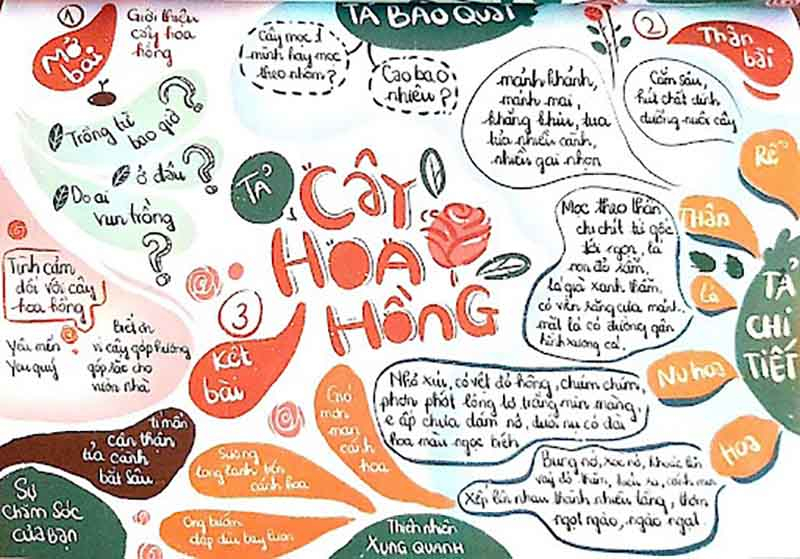 1
Mở
bài
Giới thiệu
cây hoa
hồng
Trồng từ
bao giờ
?
ở đâu
?
Do ai
vun trồng
?
TẢ BAO QUÁT
Cây mọc 1
mình hay mọc
theo nhóm?
Cao bao
nhiêu?
2
Thân
bài
TẢ
CHI
TIẾT
Rễ
Cắm sâu,
hút chất dinh
dưỡng nuôi cây
THÂN
mảnh khảnh,
mảnh mai,
khẳng khiu, tua
tủa nhiều cành,
nhiều gai nhọn
Lá
Mọc theo thân,
chi chít từ gốc
tới ngọn, lá
non đỏ sẫm,
lá già xanh thẫm,
có viền răng cưa mảnh,
mặt lá có đường gân
hình xương cá.
Nụ hoa
Nhỏ xíu, có vết đỏ hồng, chúm chím,
phơn phớt lông tơ trắng mịn màng,
e ấp chưa dám nở, dưới nụ có đài
hoa màu ngọc bích
Hoa
Bung nở, xoè nở, khoác lên
váy đỏ thắm, cánh hoa
xếp lên nhau thành nhiều tầng, thơm
ngọt ngào, ngào ngạt
TẢ
CÂY
HOA
HỒNG
3
Kết
bài
Tình cảm
đối với cây
hoa hồng
Yêu mến
Yêu quý
Biết ơn
vì cây góp hương
góp sắc cho
vườn nhà
Sự
chăm sóc
của bạn
tỉ mẩn
cẩn thận
tỉa cành
bắt sâu
Thiên nhiên
XUNG QUANH
Gió
mơn
man
cánh
hoa
Sương
long lanh trên
cánh hoa
Ong bướm
dập dìu bay lượn